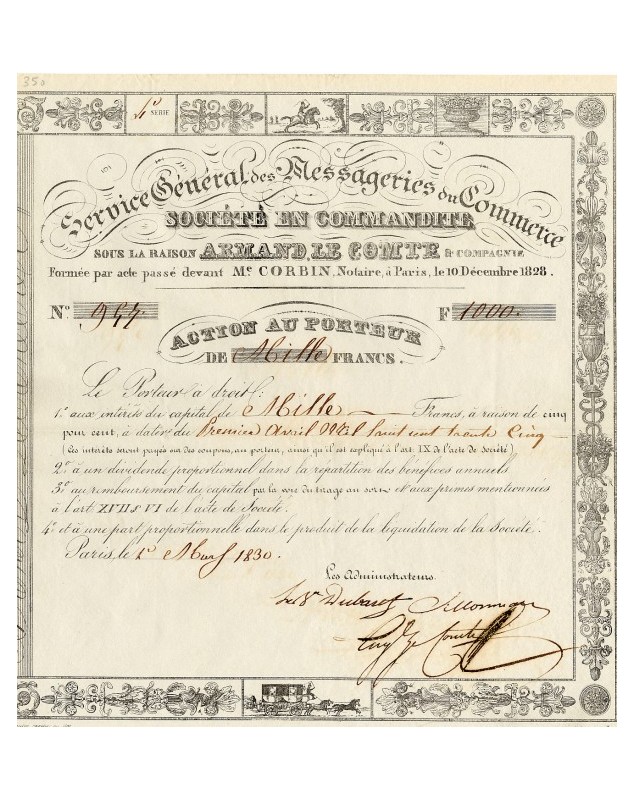 350
4e SÉRIE
Service Général des Messageries du Commerce
SOCIÉTÉ EN COMMANDITE
SOUS LA RAISON ARMAND LE COMTE & COMPAGNIE
Formée par acte passé devant Me CORBIN, Notaire, à Paris, le 10 Décembre 1828.
No. 944 F 1000.
ACTION AU PORTEUR
DE Mille FRANCS.
Le Porteur a droit:
1o aux intérêts du capital de Mille Francs, à raison de cinq
pour cent, à dater du Premier Avril Mil huit cent trente Cinq
(ces intérêts seront payés sur des coupons, au porteur, ainsi qu'il est expliqué à l'art: IX de l'acte de Société)
2o à un dividende proportionnel dans la répartition des bénéfices annuels
3o au remboursement du capital par la voie du tirage au sort et aux primes mentionnées
à l'art: XVII § VI de l'acte de Société.
4o et à une part proportionnelle dans le produit de la liquidation de la Société.
Paris, le 1er Mars 1830.
Les Administrateurs.